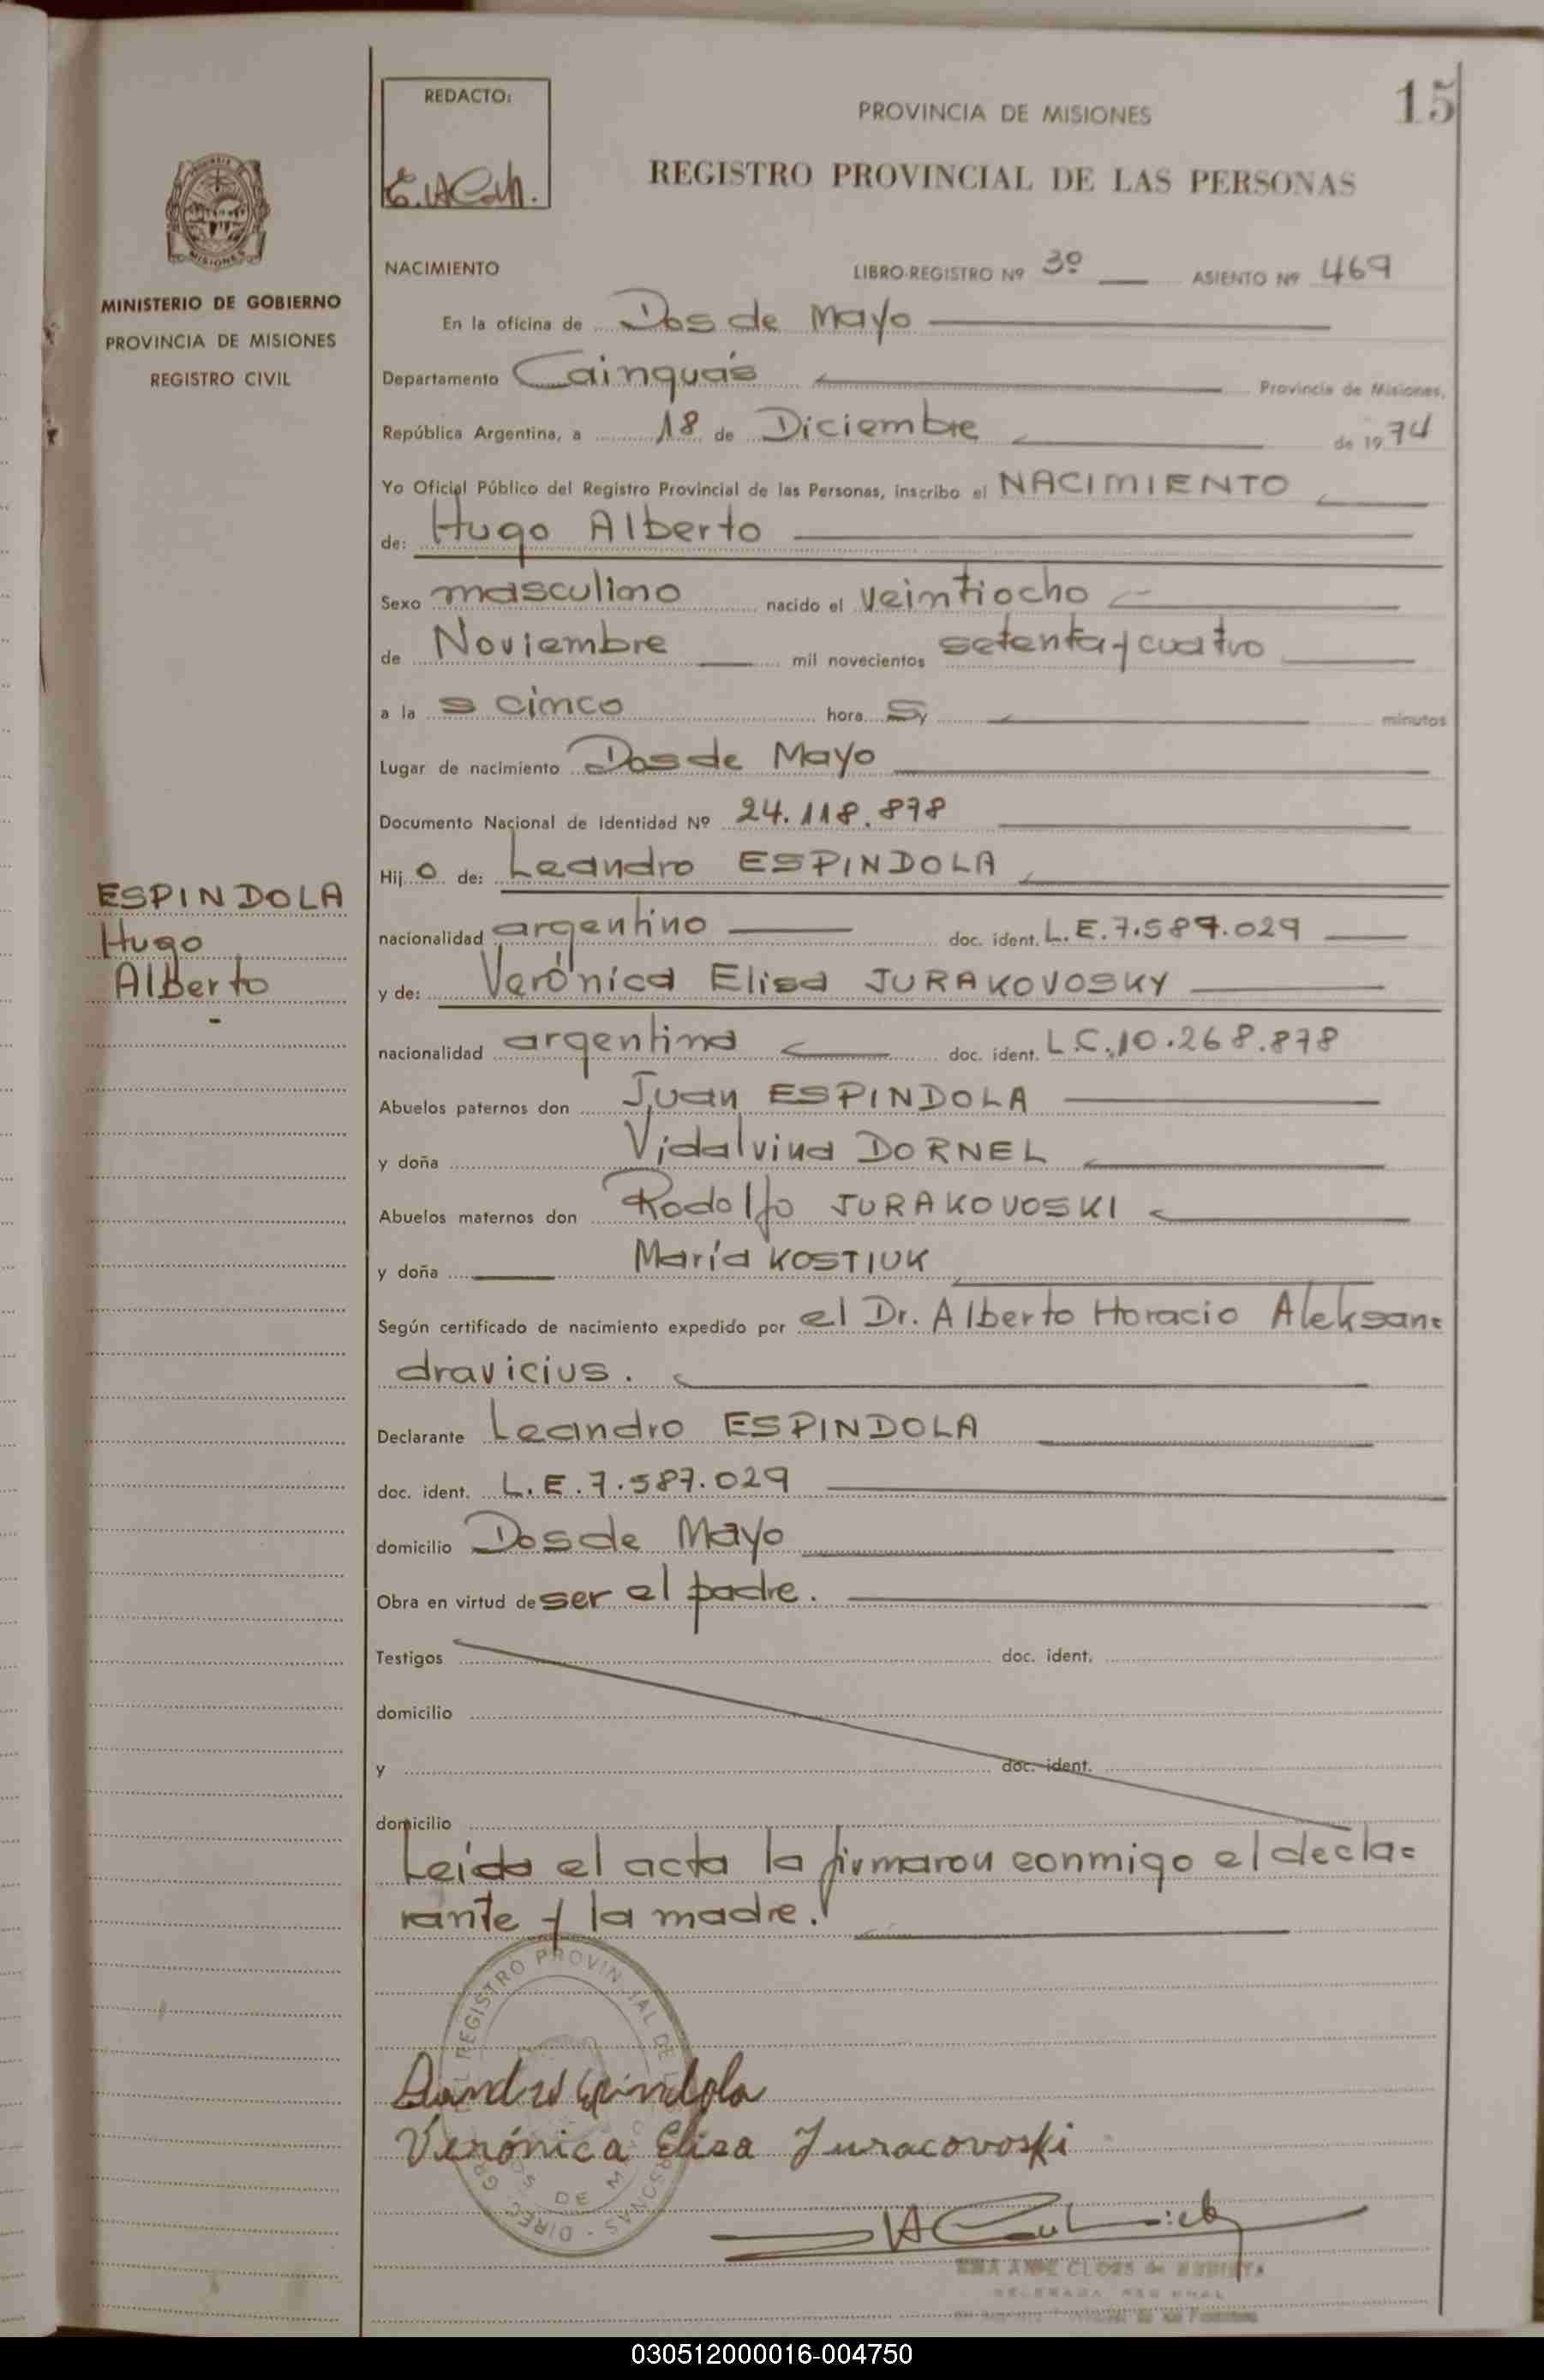 15
REDACTO:
PROVINCIA DE MISIONES
REGISTRO PROVINCIAL DE LAS PERSONAS
MISIONES
MINISTERIO DE GOBIERNO
PROVINCIA DE MISIONES
REGISTRO CIVIL
NACIMIENTO LIBRO-REGISTRO Nº 3º ASIENTO Nº 469
En la oficina de Dos de Mayo
Departamento Cainguás Provincia de Misiones,
República Argentina, a 18 de Diciembre de 1974
Yo Oficial Público del Registro Provincial de las Personas, inscribo el NACIMIENTO
de: Hugo Alberto
Sexo masculino nacido el veintiocho
de Noviembre mil novecientos setenta y cuatro
a la s cinco hora s y minutos
Lugar de nacimiento Dos de Mayo
Documento Nacional de Identidad Nº 24.118.878
Hij o de: Leandro ESPINDOLA
ESPINDOLA
Hugo
Alberto
nacionalidad argentino doc. ident. L.E. 7.587.029
y de: Verónica Elisa JURAKOVOSKY
nacionalidad argentina doc. ident. L.C. 10.268.878
Abuelos paternos don Juan ESPINDOLA
y doña Vidalvina DORNEL
Abuelos maternos don Rodolfo JURAKOVOSKI
y doña María KOSTIUK
Según certificado de nacimiento expedido por el Dr. Alberto Horacio Aleksan=
dravicius.
Declarante Leandro ESPINDOLA
doc. ident. L.E. 7.587.029
domicilio Dos de Mayo
Obra en virtud de ser el padre.
Testigos doc. ident.
domicilio
y doc. ident.
domicilio
Leída el acta la firmaron conmigo el decla=
rante y la madre.
Leandro Espindola
Verónica Elisa Juracovoski
030512000016-004750